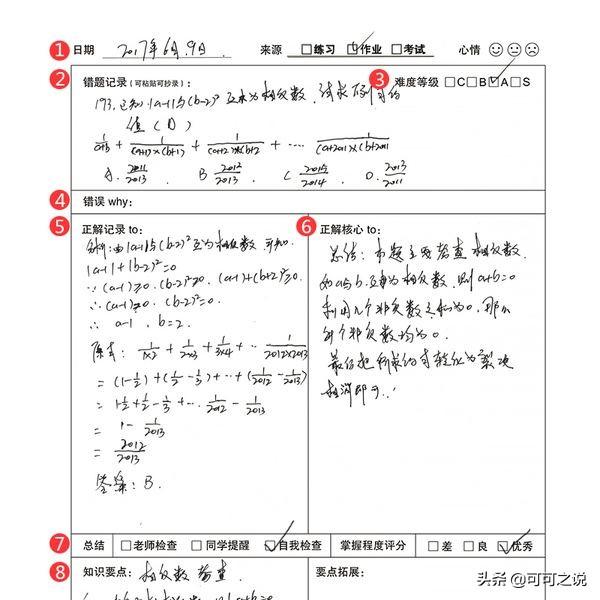 1 日期 2017年6月9日. 来源 □练习 ☑作业 □考试 心情
2 错题记录(可粘贴可抄录): 3 难度等级 □C□B☑A□S
193.已知|a-1|与(b-2)² 互为相反数,试求下列
值(D)
+ 1/(a+1)×(b+1) + 1/(a+2)×(b+2 + .... 1/(a+2011)×(b+2011
A. 2011/2013. B 2012/2013. C 2015/2014. D. 2013/2011
4 错误 why:
5 正解记录 to:
分析:由|a-1|与(b-2)²互为相反数,可知
|a-1|+(b-2)²=0
∵(a-1)≥0.(b-2)²≥0. (a-1)+(b+2)²≥0.
∴(a-1)=0. (b-2)²=0.
∴ a-1. b=2.
原式: 1/1×2 + 1/2×3 + 1/3×4 + ... 1/2012×2013
= (1-1/2)+(1/2-1/3)+..+(1/2012-1/2013)
= 1-1/2+1/2-1/3+... 1/2012-1/2013
= 1-1/2013
= 2012/2013
答案:B.
6 正解核心 to:
总结:本题主要考查相反数.
如a与b.互为相反数,则a+b=0
利用几个非负数之和为0.那么
每个非负数均为0.
最后把所求的式转化为裂项
相消即可.
7 总结 □老师检查 □同学提醒 ☑自我检查 掌握程度评分 □差 □良 ☑优秀
8 知识要点: 相反数 考查. 要点拓展:
头条@可可之说